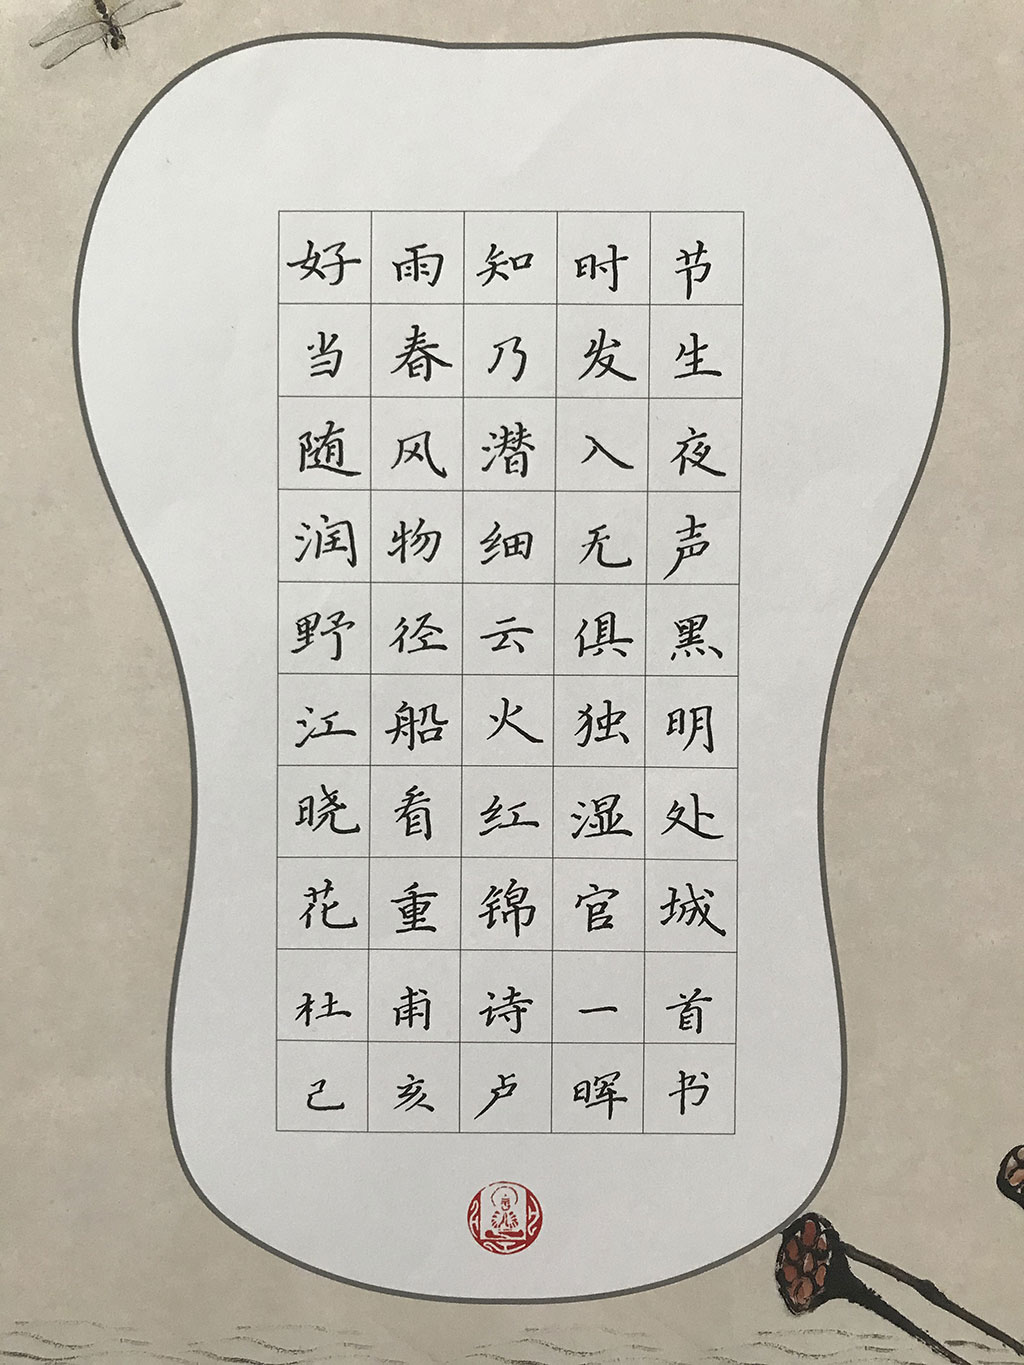 好雨知时节
当春乃发生
随风潜入夜
润物细无声
野径云俱黑
江船火独明
晓看红湿处
花重锦官城
杜甫诗一首
己亥卢晖书